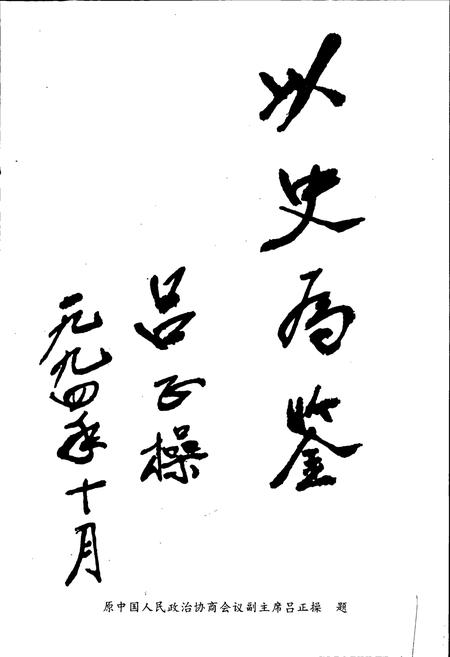 以史为鉴
吕正操
一九九四年十月
原中国人民政治协商会议副主席吕正操 题